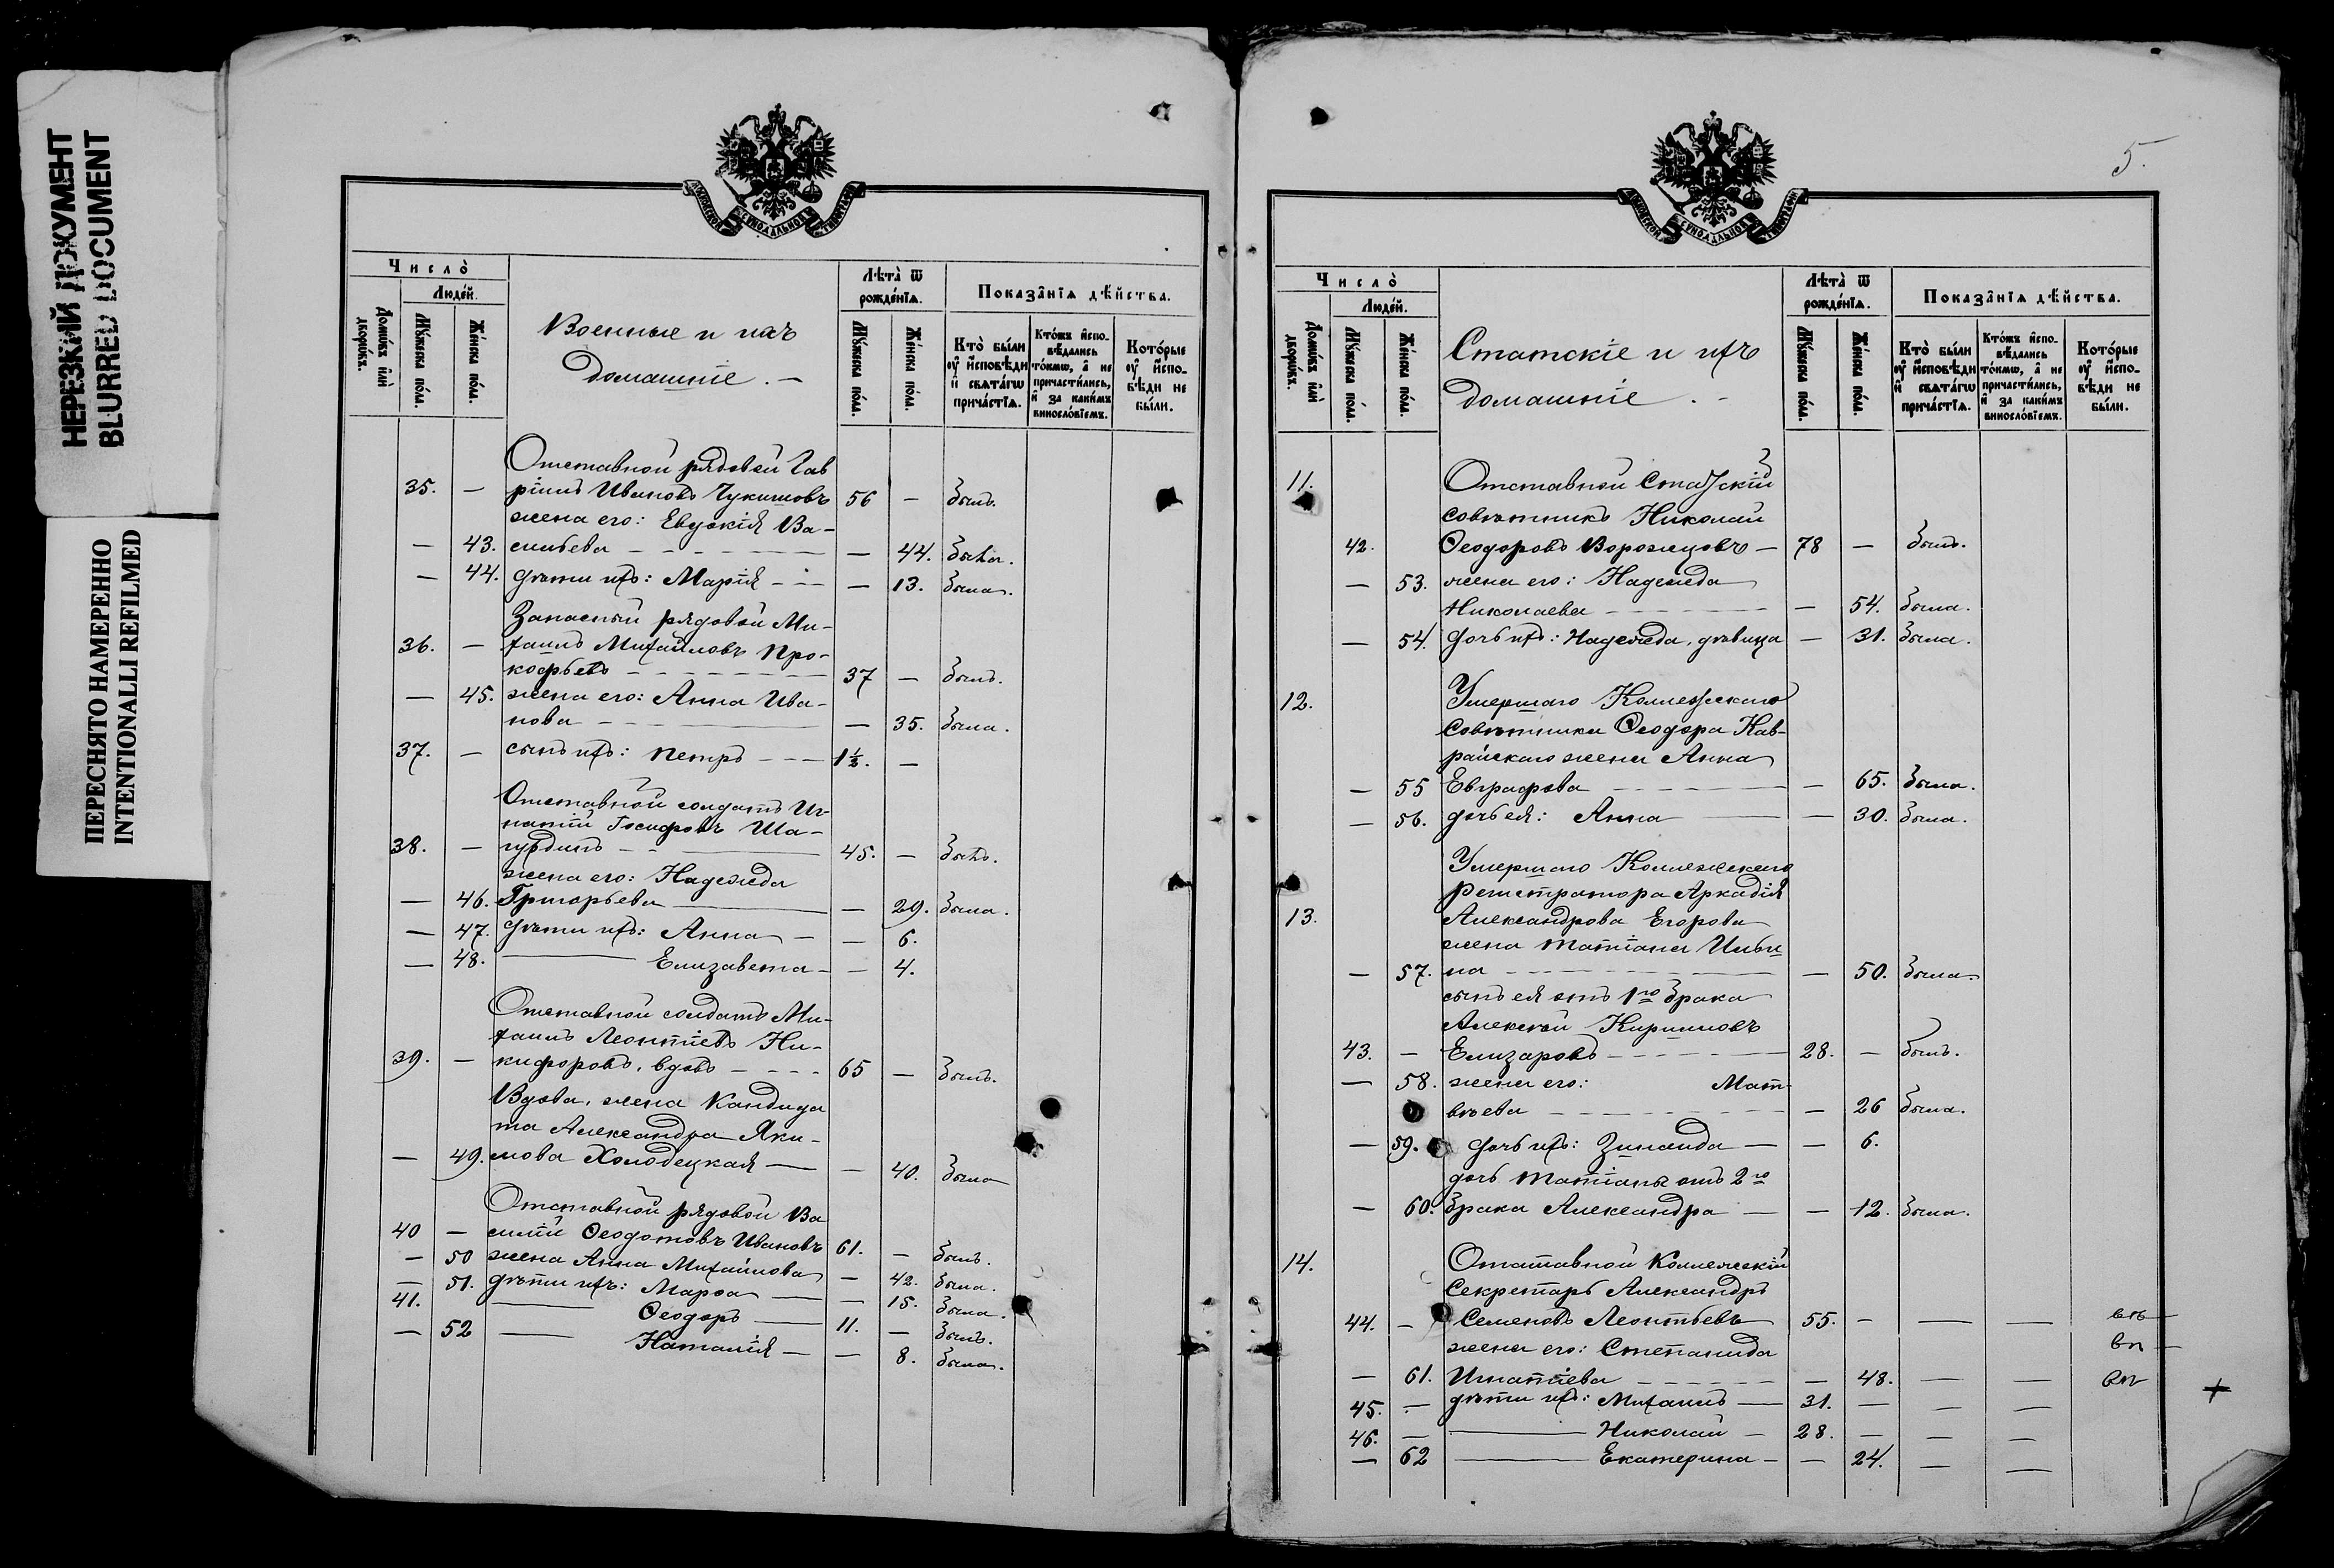 НЕРЕЗКИЙ ДОКУМЕНТ
BLURRED DOCUMENT
ПЕРЕСНЯТО НАМЕРЕННО
INTENTIONALLI REFILMED
Число̀
Людéй.
Домѡ́въ и҆лѝ дворѡ́въ.
Мꙋ́жеска по́ла.
Же́нска по́ла.
Военные и ихъ
домашніе. —
Лѣта̀ ѿ рождéнїѧ.
Мꙋ́жеска по́ла.
Же́нска по́ла.
Показа̑нїѧ дѣ́йства.
Кто̀ бы́ли оу҆ и҆сповѣ́ди и҆ свѧта́гѡ причáстїѧ.
Кто́жъ и҆спо-вѣ́дались то́кмѡ, а҆ не причасти́лись, и҆ за каки́мъ винослóвїемъ.
Кото́рые оу҆ и҆спо-вѣ́ди не бы́ли.
Отставной рядовой Гав
35. — ріилъ Ивановъ Чукшновъ 56 — былъ.
жена его: Евдокія Ва-
— 43. сильева — — 44. была.
— 44. дѣти ихъ: Марія — — 13. была.
Запасный рядовой Ми-
36. — хаилъ Михайловъ Про-
кофьевъ — 37 — былъ.
— 45. жена его: Анна Ива-
нова — — 35. была.
37. — сынъ ихъ: Петръ — 1½. —
Отставной солдатъ Иг-
натій Іосифовъ Ша-
38. — гурдинъ — 45. — былъ.
жена его: Надежда
— 46. Григорьева — — 29. была.
— 47. дѣти ихъ: Анна — — 6.
— 48. — Елизавета — — 4.
Отставной солдатъ Ми-
хаилъ Леонтіевъ Ни-
39. — кифоровъ, вдовъ — 65 — былъ.
Вдова, жена Кандида
та Александра Яки-
— 49. мова Холодецкая — — 40. была
Отставной рядовой Ва
40 — силій Ѳеодотовъ Ивановъ 61. — былъ.
— 50 жена Анна Михайлова — 42. была.
— 51. дѣти ихъ: Марѳа — — 15. была.
41. — Ѳеодоръ — 11. — былъ.
— 52 — Наталія — — 8. была.
5.
Число̀
Людéй.
Домѡ́въ и҆лѝ дворѡ́въ.
Мꙋ́жеска по́ла.
Же́нска по́ла.
Статскіе и ихъ
домашніе. -
Лѣта̀ ѿ рождéнїѧ.
Мꙋ́жеска по́ла.
Же́нска по́ла.
Показа̑нїѧ дѣ́йства.
Кто̀ бы́ли оу҆ и҆сповѣ́ди и҆ свѧта́гѡ причáстїѧ.
Кто́жъ и҆спо-вѣ́дались то́кмѡ, а҆ не причасти́лись, и҆ за каки́мъ винослóвїемъ.
Кото́рые оу҆ и҆спо-вѣ́ди не бы́ли.
11. Отставной Статскій
совѣтникъ Николай
42. Ѳеодоровъ Ворожцовъ — 78 — былъ.
— 53. жена его: Надежда
Николаева — — 54. была.
— 54. дочь ихъ: Надежда, дѣвица — 31. была.
12. Умершаго Коллежскаго
Совѣтника Ѳеодора Кав-
райскаго жена Анна
— 55 Евграфова — — 65. была.
— 56. дочь ея: Анна — — 30. была.
Умершаго Коллежскаго
Регистратора Аркадія
13. Александрова Егорова
жена Татіана Ильи
— 57. на — — 50. была
сынъ ея отъ 1го брака
Алексѣй Кирилловъ
43. — Елизаровъ — 28. — былъ.
— 58. жена его: Мат-
вѣева — — 26 была.
— 59. дочь ихъ: Зинаида — — 6.
дочь Татіаны отъ 2го
— 60. брака Александра — — 12. была.
14. Отставной Коллежскій
Секретарь Александръ
44. — Семеновъ Леонтьевъ 55. — — —
жена его: Степанида
— 61. Игнатіева — — 48. — —
45. — дѣти ихъ: Михаилъ — 31. — — —
46. — — Николай — 28. — — —
— 62 — Екатерина — — 24. — —